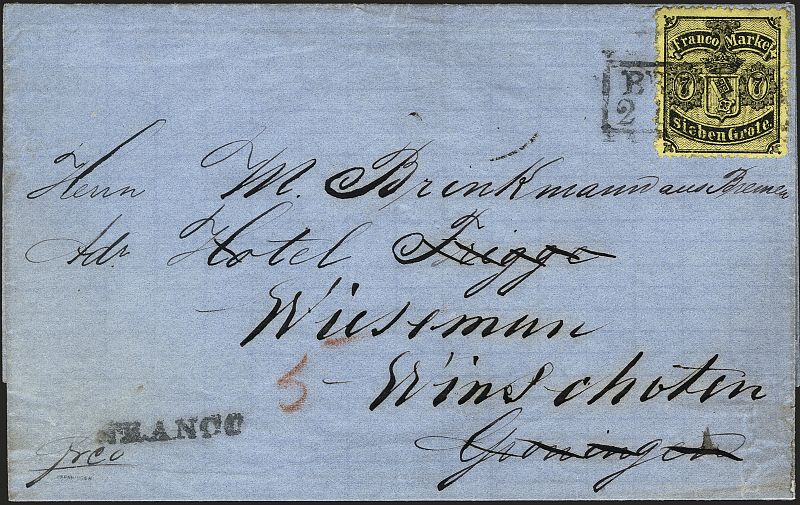 Franco Marke
7 7
Sieben Grote.
2
Herrn M. Brinkmann aus Bremen
Adr Hotel Frigge
Wiesemun
5
Winschoten
FRANCO
Groningen
frco